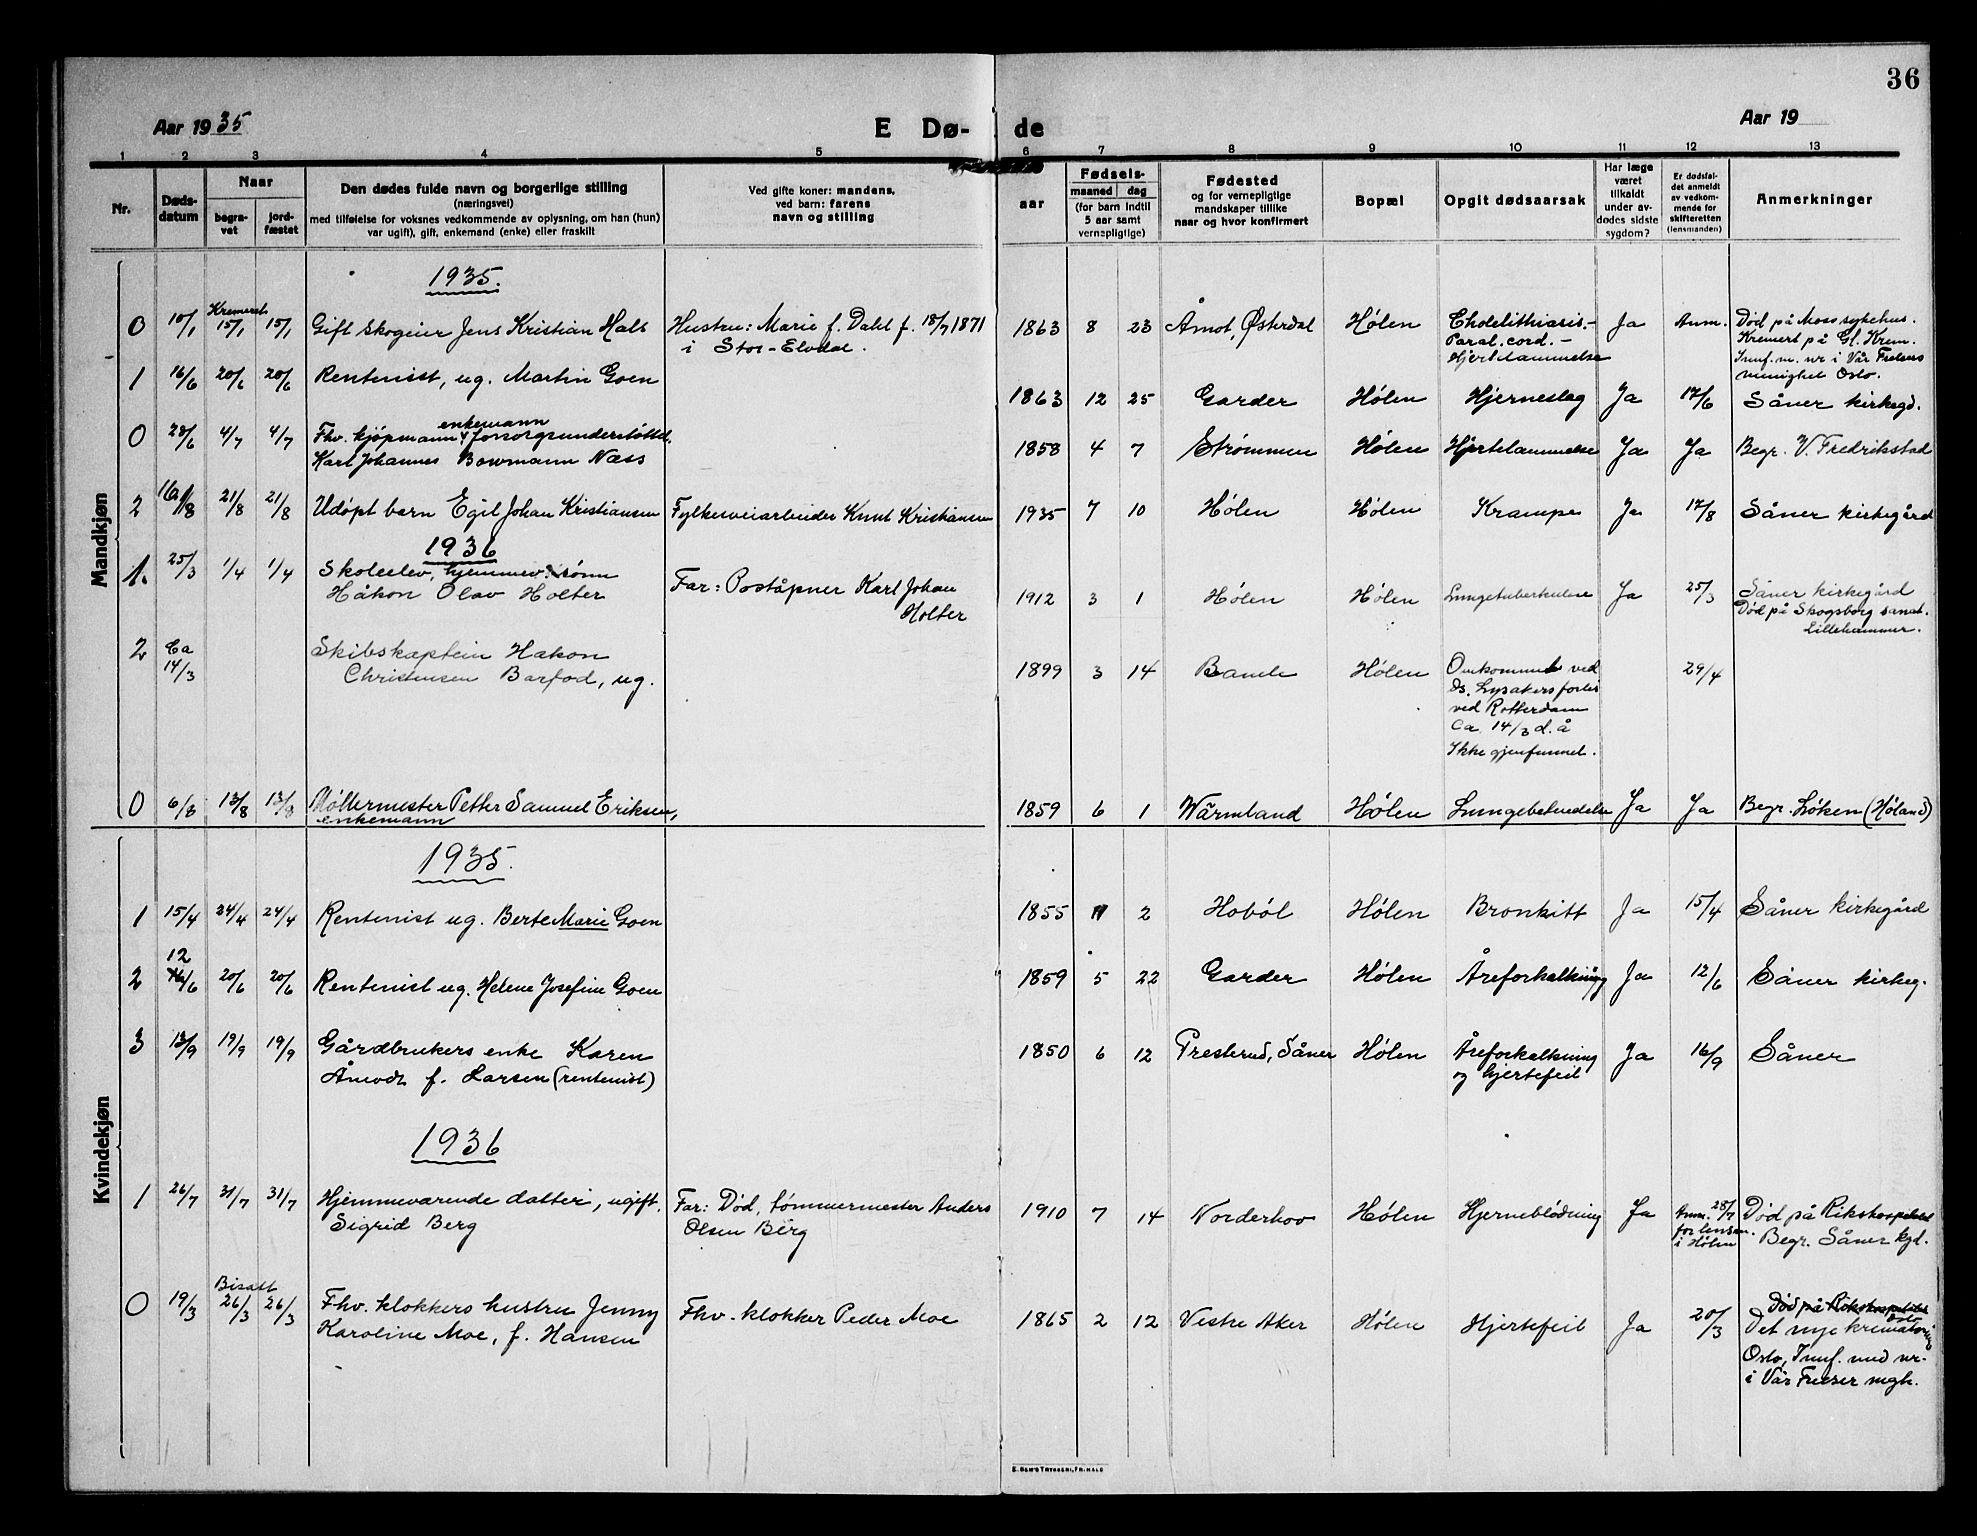 36
Aar 1935 E Dø- de Aar 19
1 2 3 4 5 6 7 8 9 10 11 12 13
Nr. Døds-datum Naar begra-vet jord-fæstet Den dødes fulde navn og borgerlige stilling (næringsvei) med tilføielse for voksnes vedkommende av oplysning, om han (hun) var ugift), gift, enkemand (enke) eller fraskilt Ved gifte koner: mandens, ved barn: farens navn og stilling
Fødsels- aar maaned dag (for barn indtil 5 aar samt vernepligtige) Fødested og for vernepligtige mandskaper tillike naar og hvor konfirmert Bopæl Opgit dødsaarsak Har læge været tilkaldt under avdødes sidste sygdom? Er dødsfaldet anmeldt av vedkommende for skifteretten (lensmanden) Anmerkninger
Mandkjøn
1935.
0 10/1 Kremert 15/1 15/1 Gift Skogeier Jens Kristian Hals Hustru: Marie f. Dahl f. 18/7 1871 i Stor-Elvdal. 1863 8 23 Åmot, Østerdal Hølen Cholelithiasis.- Paral. cord. - Hjertelammelse Ja Anm. Død på Moss sykehus. Kremert på Gl. Krem. Innf. m. nr i Vår Frelsers menighet Oslo.
1 16/6 20/6 20/6 Rentenist, ug. Martin Goen 1863 12 25 Garder Hølen Hjerneslag Ja 17/6 Såner kirkegd.
0 28/6 4/7 4/7 Fhv. kjøpmann, enkemann forsorgsunderstøttet, Karl Johannes Bowmann Næss 1858 4 7 Strømmen Hølen Hjertelammelse Ja Ja Begr. V. Fredrikstad
2 16/8 21/8 21/8 Udøpt barn Egil Johan Kristiansen Fylkesveiarbeider Knut Kristiansen 1935 7 10 Hølen Hølen Krampe Ja 17/8 Såner kirkegård
1936
1. 25/3 1/4 1/4 Skoleelev, hjemmev. sønn Håkon Olav Holter Far: Poståpner Karl Johan Holter 1912 3 1 Hølen Hølen Lungetuberkulose Ja 25/3 Såner kirkegård Død på Skogsborg sanat. Lillehammer.
2 Ca 14/3 Skibskaptein Hakon Christensen Barfod, ug. 1899 3 14 Bamle Hølen Omkommet ved Ds. Lysakers forlis ved Rotterdam Ca 14/3 d. å Ikke gjenfunnet. 29/4
0 6/8 13/8 13/8 Møllermester Petter Samuel Eriksen, enkemann 1859 6 1 Wärmland Hølen Lungebetendelse Ja Ja Begr. Løken (Høland)
Kvindekjøn
1935.
1 15/4 24/4 24/4 Rentenist ug. Berte Marie Goen 1855 11 2 Hobøl Hølen Bronkitt Ja 15/4 Såner kirkegård
2 12/6 20/6 20/6 Rentenist ug. Helene Josefine Goen 1859 5 22 Garder Hølen Åreforkalkning Ja 12/6 Såner kirkeg.
3 13/9 19/9 19/9 Gårdbrukers enke Karen Åmodt f. Larsen (rentenist) 1850 6 12 Presterud, Såner Hølen Åreforkalkning og hjertefeil Ja 16/9 Såner
1936
1 26/7 31/7 31/7 Hjemmeværende datter, ugift, Sigrid Berg Far: Død, tømmermester Anders Olsen Berg 1910 7 14 Norderhov Hølen Hjerneblødning Ja Anm. 28/7 for lensm. i Hølen Død på Rikshospitalet Begr. Såner kgd.
0 19/3 Bisatt 26/3 26/3 Fhv. klokkers hustru Jenny Karoline Moe, f. Hansen Fhv. klokker Peder Moe 1865 2 12 Vestre Aker Hølen Hjertefeil Ja 20/3 Død på Rikshospitalet Oslo Det nye krematorium Oslo, Innf. med nr. i Vår Frelser mgh.
E. SEM'S TRYKKERI, FR.HALD